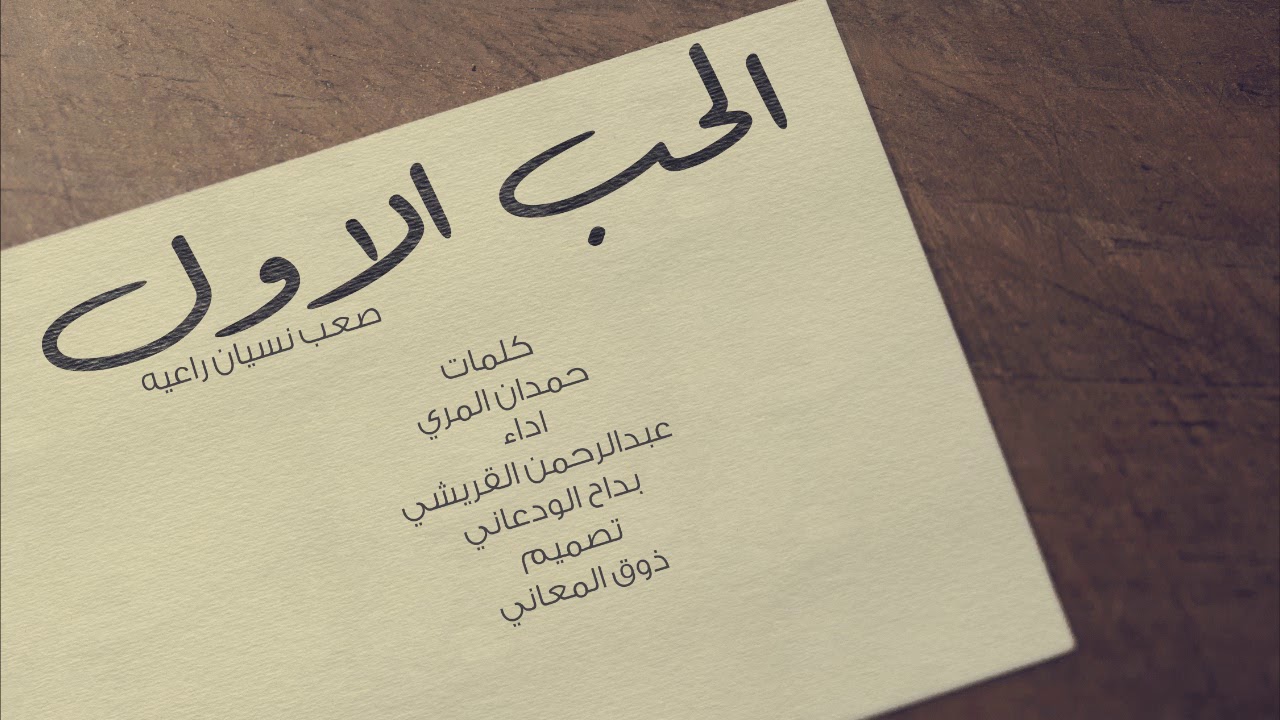 الحب الاول
صعب نسيان راعيه
كلمات
حمدان المري
اداء
عبدالرحمن القريشي
بداح الودعاني
تصميم
ذوق المعاني